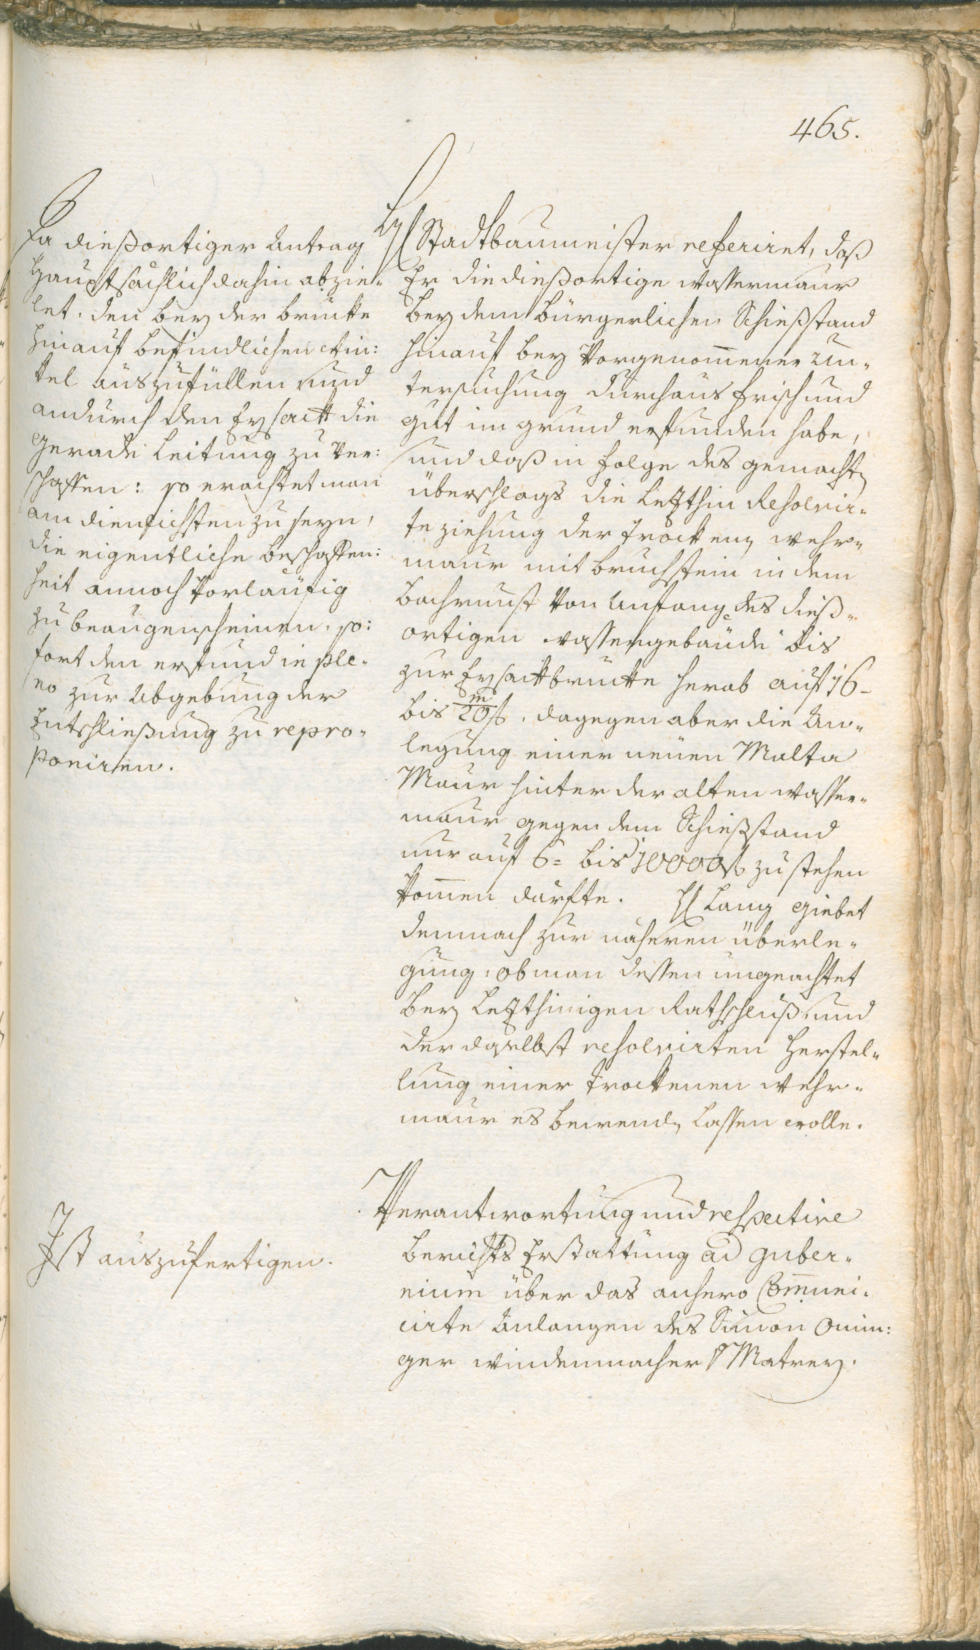 465.
Da dießortiger Antrag
Hauptsächlich dahin abzie-
let. den bey der brücke
hinauf befindlichen Win:
kel auszufüllen und
andurch den Eysackh die
gerade Leitung zu ver:
schaffen: so erachtet man
am dienlichsten zu seyn,
die eigentliche beschaffen:
heit annoch vorläufig
zu beaugenscheinen. so:
fort den erfund in ple-
no zur Abgebung der
Entschließung zu repro-
poniren.
H Stadtbaumeister referiret, daß
Er die dießortige wassermaur
bey dem bürgerlichen Schießstand
hinauf bey vorgenom̄ener Un-
tersuchung durchaus frisch und
gut im grund erfunden habe,
und daß in folge des gemachten
überschlags die letzthin Resolvir-
te ziehung der trockenen wehr-
maur mit bruchstein in dem
bachrunst von Anfang des dieß-
ortigen wassergebäude bis
zur Eysackbrucke herab auf 16-
bis 20/m f. dagegen aber die An-
legung einer neuen Malta
Maur hinter der alten wasser-
maur gegen dem Schießstand
nur auf 6- bis 10000 f zu stehen
kom̄en dürfte. H Lang giebet
demnach zur näheren überle-
gung: ob man dessen ungeachtet
bey letzthinigen Rathschluß, und
der daselbst resolvirten Herstel-
lung einer trockenen wehr-
maur es bewenden lassen wolle.
Ist auszufertigen.
Verantwortung und respective
berichts Erstattung ad guber-
nium über das anhero Com̄uni-
cirte Anlangen des Simon
ger windenmacher Matrey.